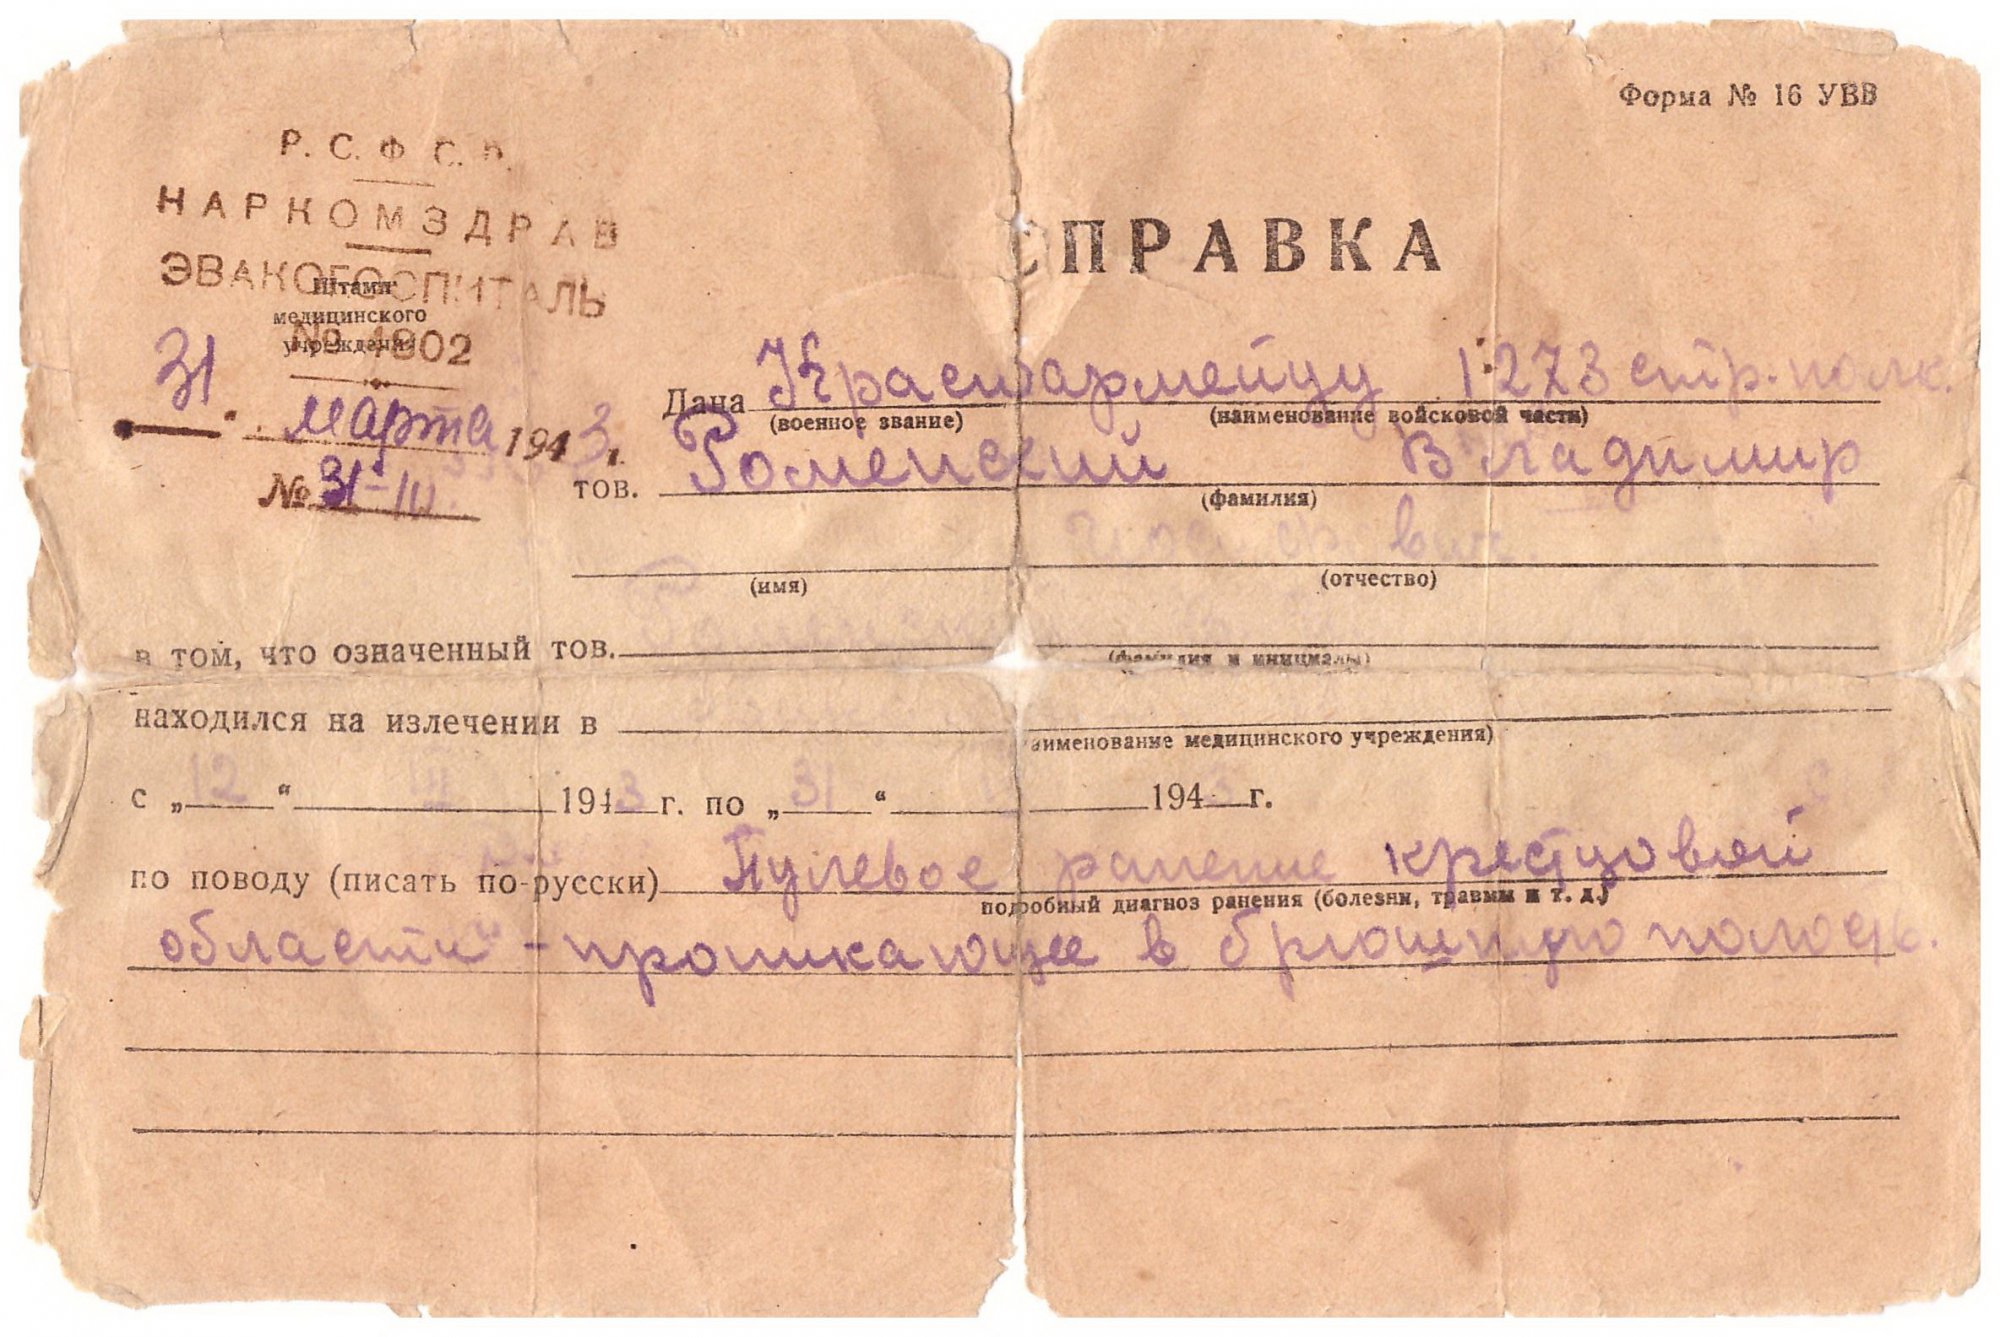 Форма № 16 УВВ
Р. С. Ф. С. Р.
НАРКОМЗДРАВ
ЭВАКОГОСПИТАЛЬ
Штамп
медицинского
учреждения
СПРАВКА
31 марта 1943 г.
№ 31-III
Дана Красноармейцу 1273 стр. полк.
(военное звание) (наименование войсковой части)
тов. Роменский Владимир
(фамилия)
(имя) (отчество)
в том, что означенный тов.
(фамилия и инициалы)
находился на излечении в
наименование медицинского учреждения)
с „12“ III 1943 г. по „31“ 1943 г.
по поводу (писать по-русски) Пулевое ранение крестцовой
подробный диагноз ранения (болезни, травмы и т. д.)
области - проникающее в брюшную полость.